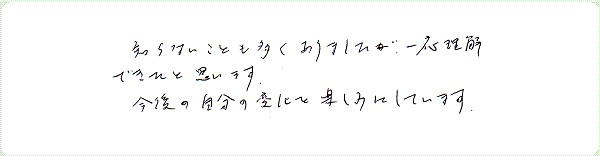 知らないことも多くありましたが、一応理解
できたと思います。
今後の自分の変化を楽しみにしています。